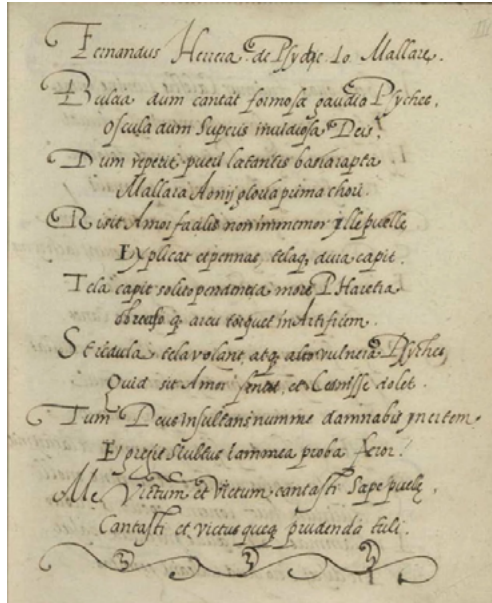 Fernandus Herrera. de Psyche Io. Mallare.
Dulcia dum cantat formosæ gaudia Psyches,
Oscula dum Superis inuidiosa Deis.
Dum repetit pueri lætantis basia rapta
Mallara Aonij gloria prima chori.
Risit Amor facilis non immemor ylle puellę
Explicat et pennas, telaq; diua capit.
Tela capit solito pendentia more Pharetra
q arcu torquet in Artificem.
Stridula tela volant, atq alto vulnera Psyches,
Quid sit Amor sentit, et Cesnisse dolet.
Tum Deus insultans numme damnabis ynertem.
stultus iam mea proba feror.
Me Victum et victum cantasti Sæpe puellę,
Cantasti et victus queq prudenda tuli.